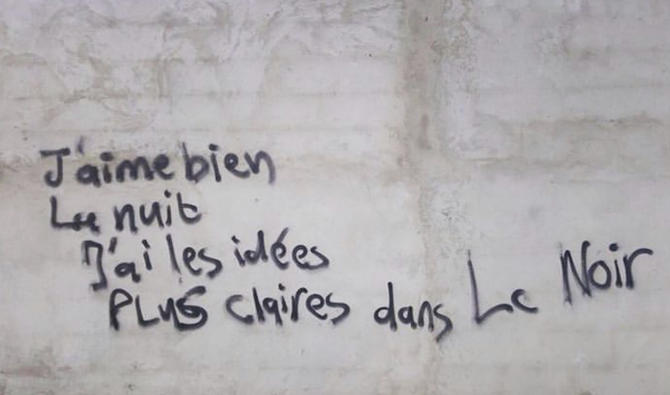 J'aime bien
La nuit
J'ai les idées
PLUS claires dans Le Noir